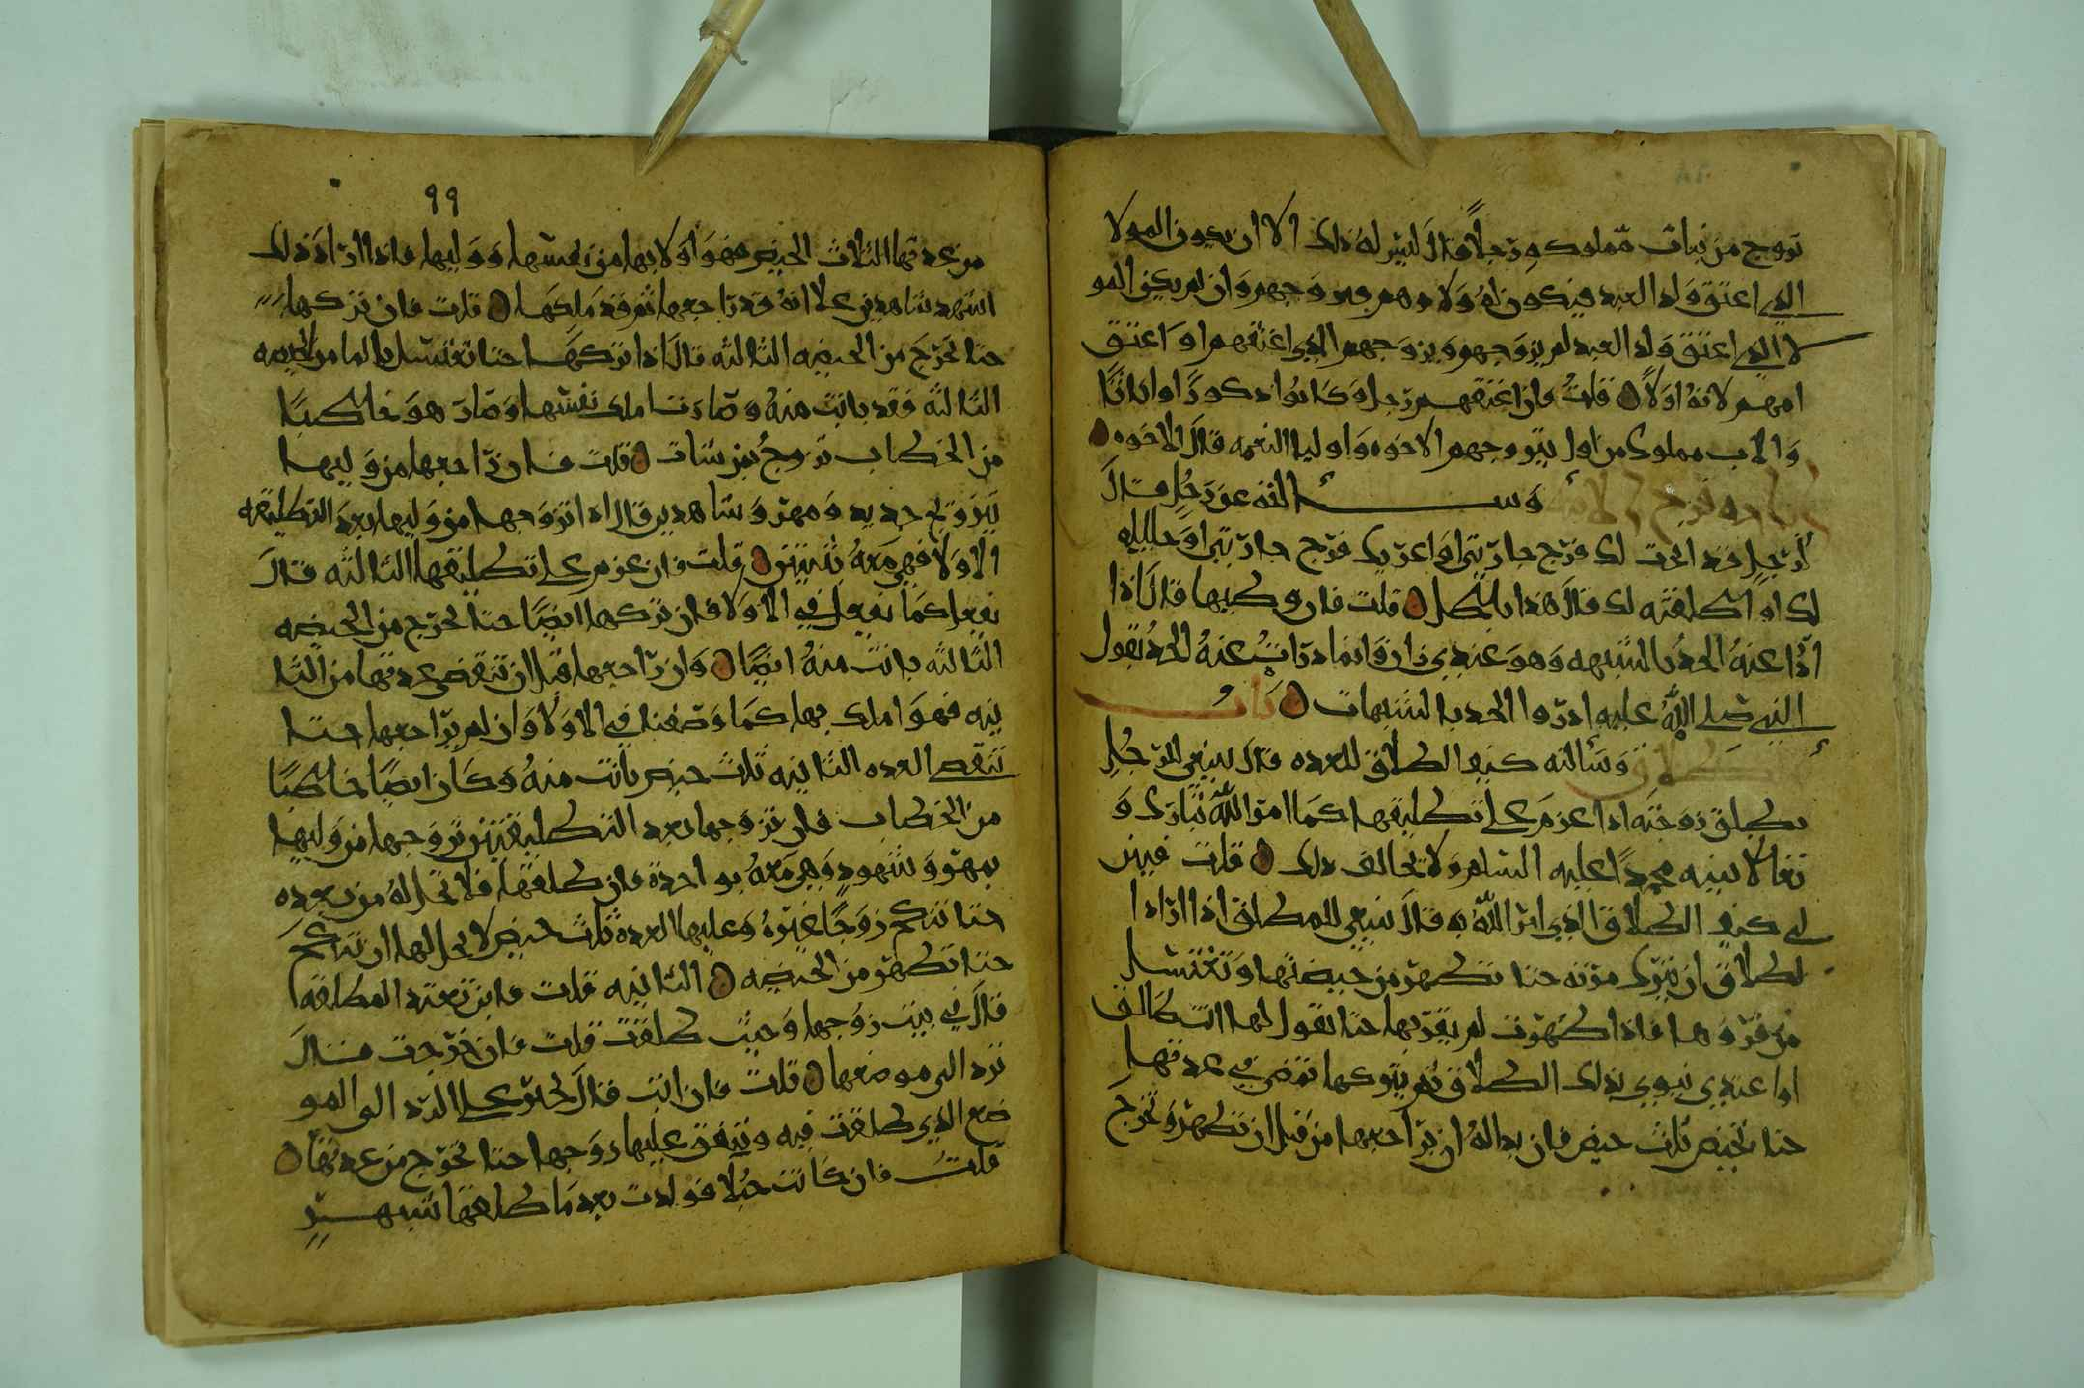 تزوج من بنات مملوكه رجلا قال ليس له ذلك الا ان يكون المولا
الذي اعتق ولد العبد فيكون له ولاوهم فيزوجهم وان لم يكن المو
لا الذي اعتق ولد العبد لم يزوجهم ويزوجهم الذي اعتقهم او اعتق
امهم لانه اولا قلت فان اعتقهم رجل وكانوا ذكورا او اناثا
والاب مملوك من اولى بتزوجهم الاخوه او اوليا النعمه قال الاخوه
وسالته عن رجل قال
لرجل قد ابحت لك فرج جاريتي او اعريك فرج جاريتي او حليله
لك او اطلقته لك قال هذا باطل قلت فان وطيها قال اذا
ادرا عنه الحد بالشبهه وهو عندي زان وانما درات عنه الحد لقول
النبي صلى الله عليه ادروا الحد بالشبهات باب
وسالته كيف الطلاق للعده قال ينبغي للرجل
يطلق زوجته اذا عزم على تطليقها كما امر الله تبارك و
تعالا نبيه محمدا عليه السلم ولا يخالف ذلك قلت فبين
لي كيف الطلاق الذي امر الله به قال ينبغي للمطلق اذا اراد ا
لطلاق ان يترك مرته حتا تطهر من حيضتها وتغتسل
من قروها فاذا طهرت لم يقربها حتا يقول لها انت طالق
او اعتدي ينوي بذلك الطلاق ثم يتركها تمضي في عدتها
حتا تحيض ثلث حيض فان بدا له ان يراجعها من قبل ان تطهر وتخرج
٩٩
من عدتها الثلاث الحيض فهو اولا بها من نفسها ووليها فاذا اراد ذلك
اشهد شاهدين على انه قد راجعها ثم قد ملكها قلت فان تركها
حتا تخرج من الحيضه الثالثه قال اذا تركها حتا تغتسل بالما من الحيضه
الثالثه فقد بانت منه وصارت املك بنفسها وصار هو خاطبا
من الخطاب تزوج من شات قلت فان راجعها من وليها
بتزويج جديد ومهر وشاهدين قال اذا تزوجها من وليها بعد التطليقه
الاولا فهي معه بثنتين قلت فان عزم على تطليقها الثالثه قال
يفعل كما يفعل في الاولا فان تركها ايضا حتا تخرج من الحيضه
الثالثه بانت منه ايضا وان راجعها قبل ان تنقضي عدتها من الثا
نيه فهو املك بها كما وصفنا في الاولا وان لم يراجعها حتا
تنقضي العده الثانيه ثلث حيض بانت منه وكان ايضا خاطبا
من الخطاب فان تزوجها بعد التطليقتين تزوجها من وليها
بمهر وشهود وهي معه بواحدة فان طلقها فلا تحل له من بعده
حتا تنكح زوجا غيره وعليها العده ثلث حيض لا يحل لها ان تنكح
حتا تطهر من الحيضه الثانيه قلت فاين تعتد المطلقه
قال في بيت زوجها وحيث طلقت قلت فان خرجت قال
ترد الى موضعها قلت فان ابت قال تجبر على الرد الى المو
ضع الذي طلقت فيه وينفق عليها زوجها حتا تخرج من عدتها
قلت فان كانت حبلا فولدت بعد ما طلقها بشهر